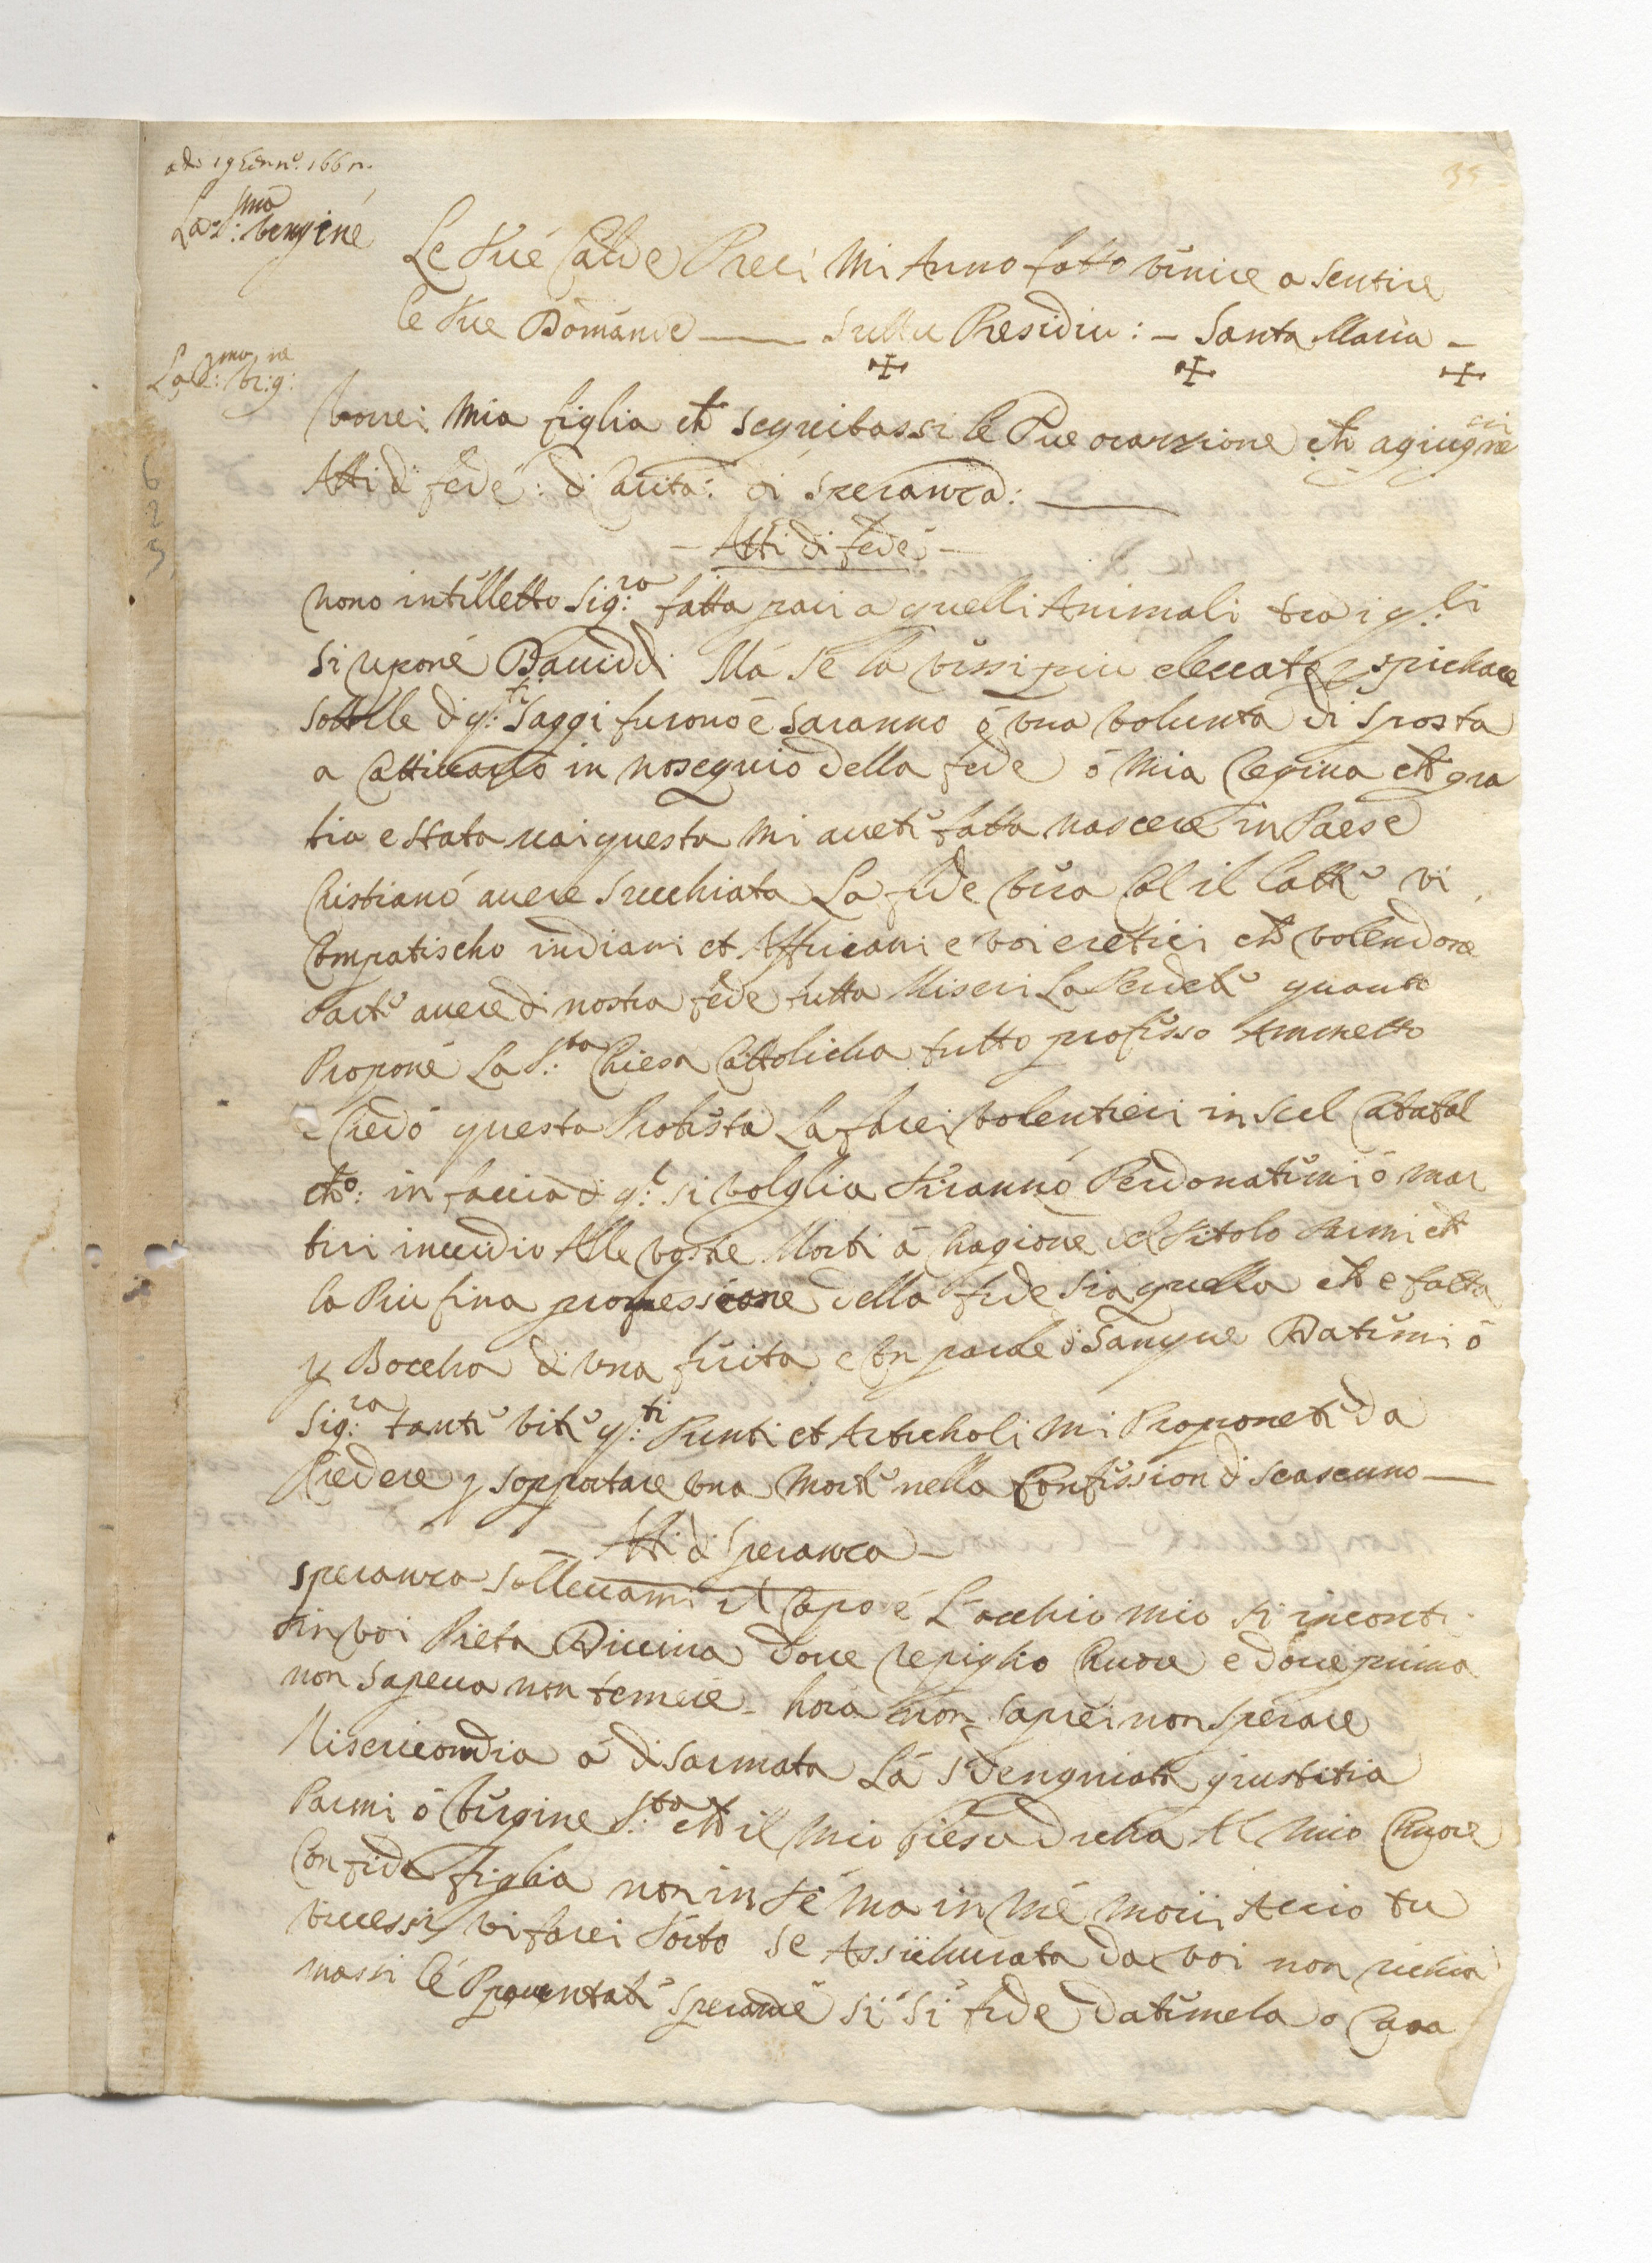 adi 19 Genn.º 166
La S.ma vergine
Le Tue Calde Preci Mi Anno fatto venire a sentire
le Tue Domande —— Sullu Presidiu : – Santa Maria –
La S.ma ve:rg:ne
Vorrei Mia figlia ch seguitassi le Tue orazzione ch agiugnie
Atti di fede : di Carità : di Speranza : ——
– Atti di fede –
nono intelletto Sig:ra fatta pari a quelli Animali tra i q:li
si ripone Davidd Ma se la vessi piu elevato spichace
sottile di q:ti Saggi furono è saranno ò una volunta di sposta
a Cattivarlo in nosequio della fede ò Mia Regina ch gra
tia e stata mai questa mi avete fatta nascere in Paese
Cristiano avere succhiata La fede vera Col il latte vi
Compatischo indiani et Affricani e voi eretici ch volendone
Parte avere di nostra fede tutta Miseri La Perdete quanto
Propone La S:ta Chiesa Cattolicha tutto professo Ammetto
e Credo questa Protesta La farei volentieri in sul Catafal
cho: in faccia di q:l si volglia Tiranno Perdonatemi ò mar
tiri invidio Alle vostre Morti à Cragione del Titolo Parmi ch
la Piu fina professione della fede sia quella ch e fatta
p Boccha di una ferita e Con parole di Sangue Datemi ò
Sig:ra tante vite q:ti Punti et Articholi mi Proponete da
Credere p sopportare una Morte nella Confession di scascuno ——
– Atti di Speranza –
Speranza Sollevami il Capo é L'occhio mio si incontr
in voi Pieta Divina dove repiglio Cuore e dove prima
non sapeva non temere hora non saprei non sperare
Misericordia á disarmata La Sdengniata giustitia
Parmi ò Vergine S:ta ch il Mio Giesu dicha Al mio Cuore
Confida figlia non in te Ma in Mé Morii Accio tu
vivessi vi farei Torto se Assichurata da voi non richia
massi lé Spaventate Speranze Si Si fede datemela o Cara